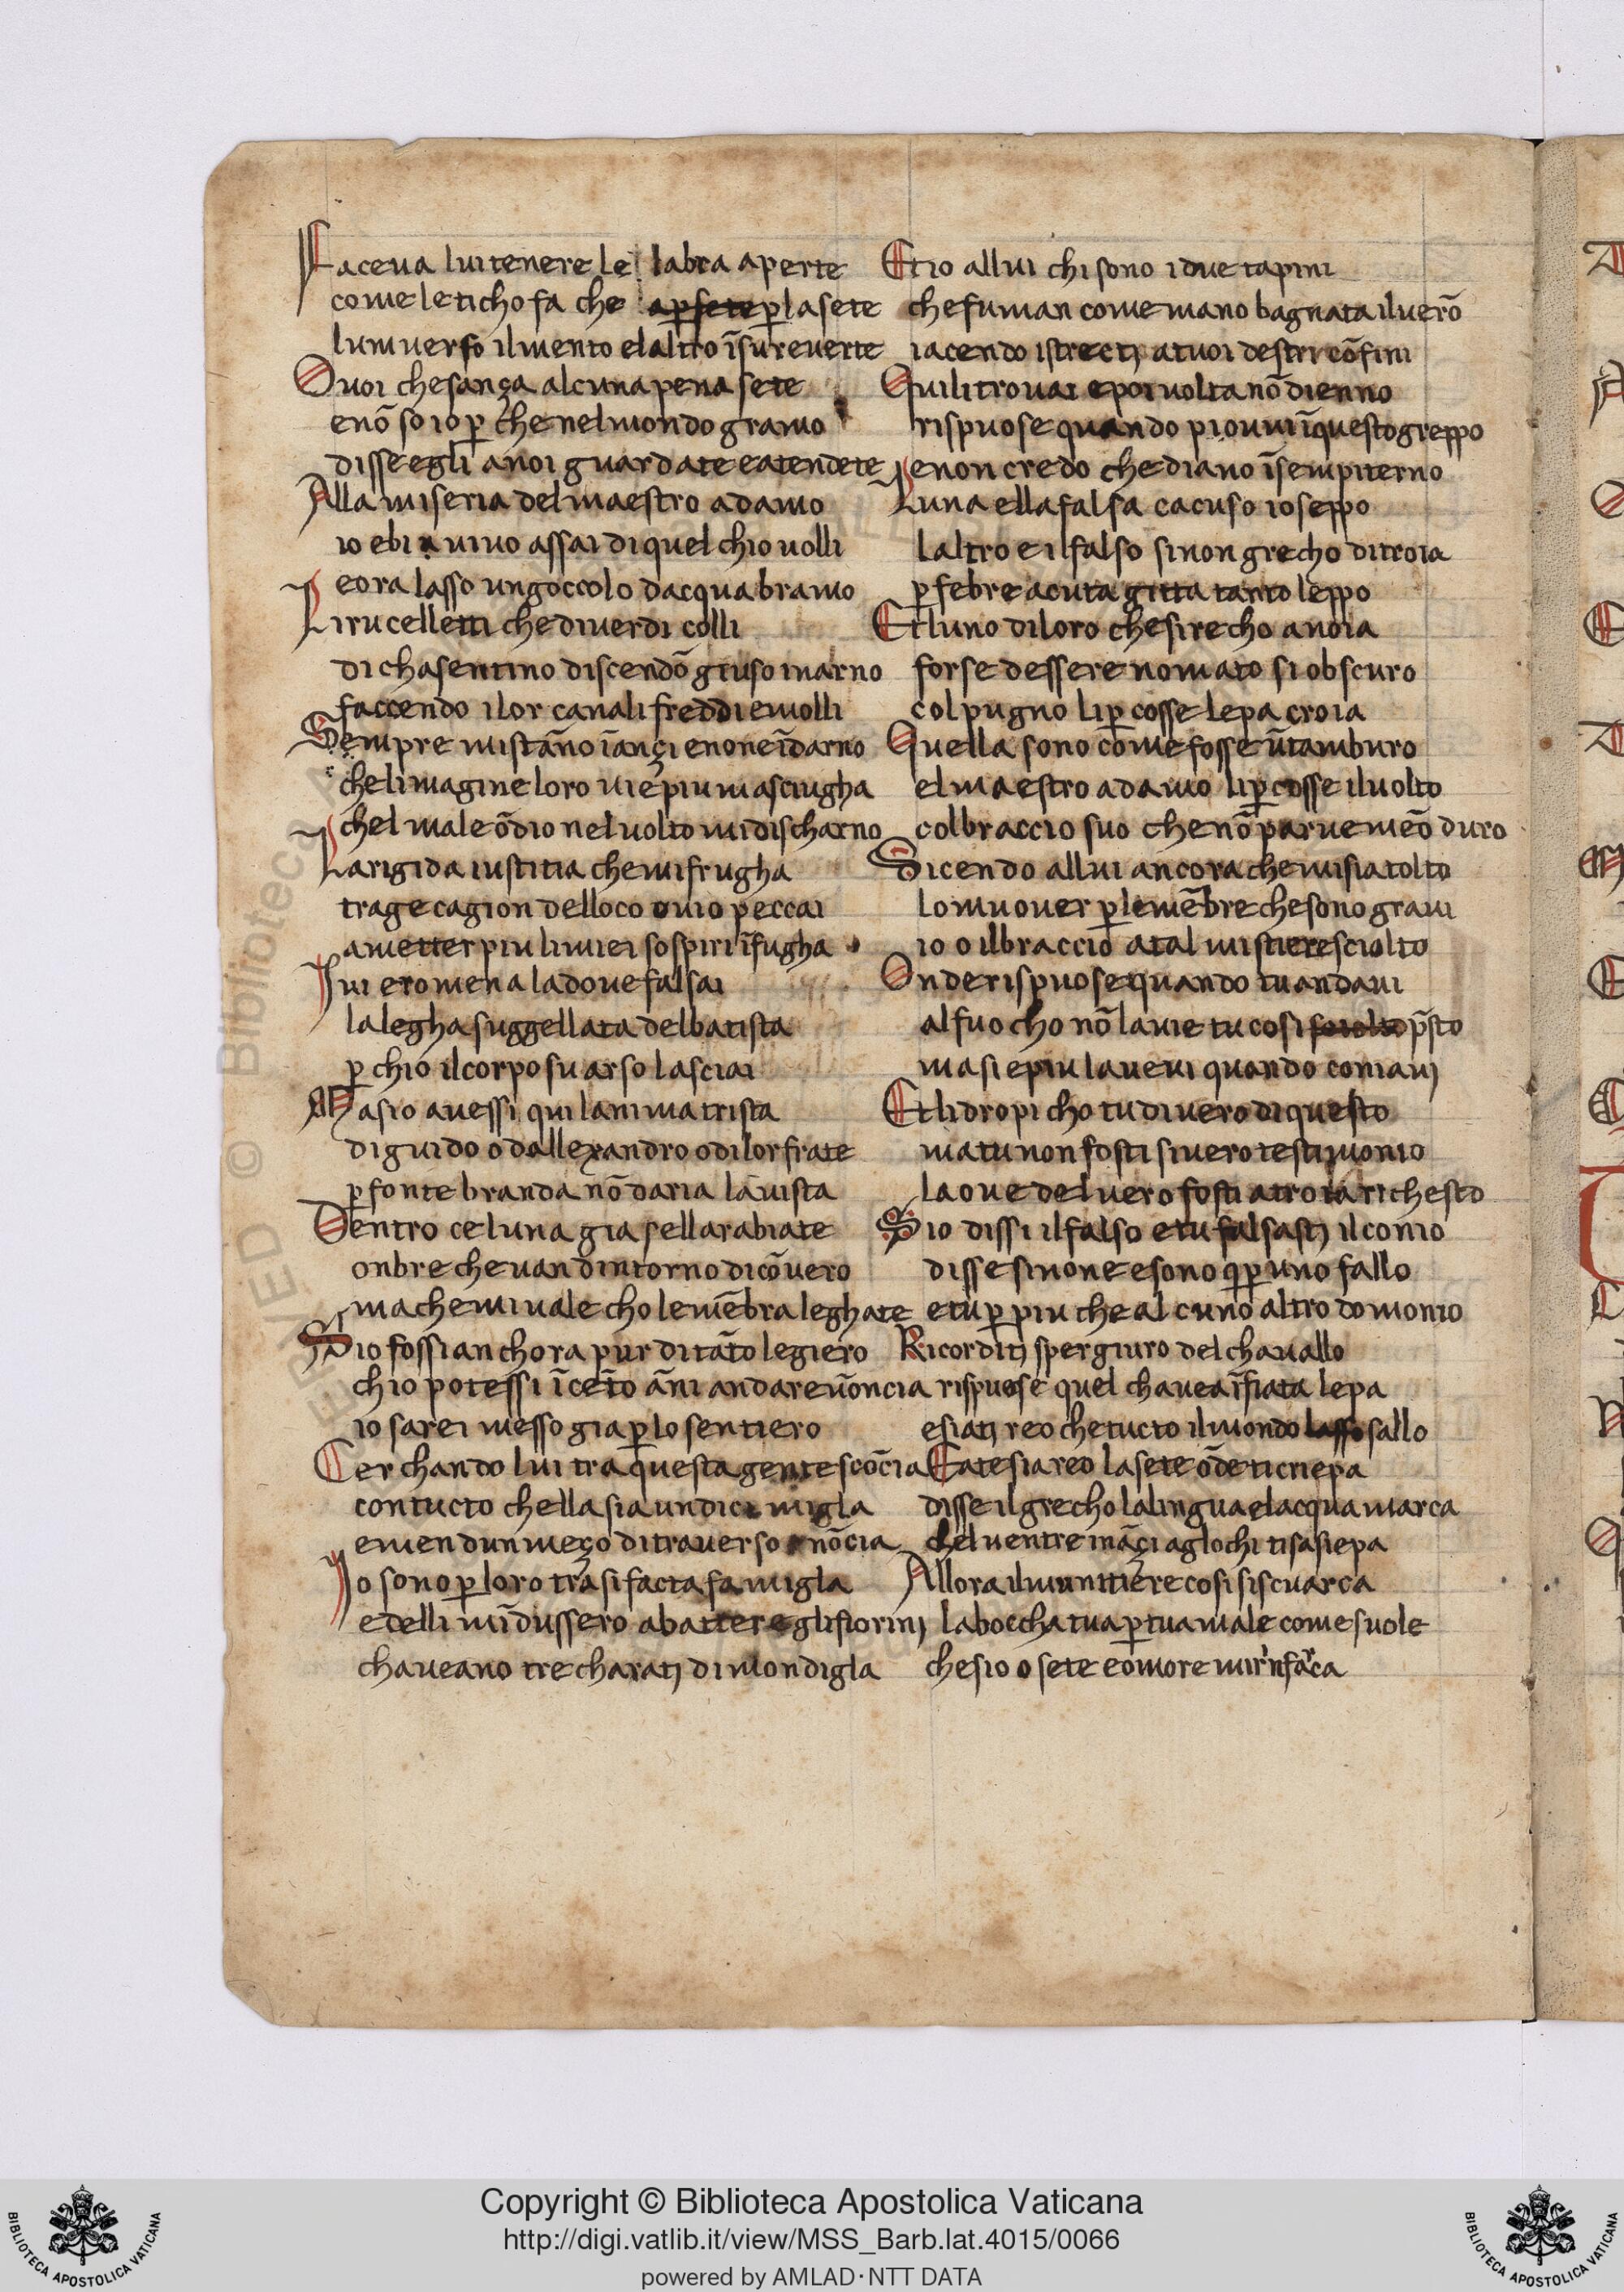 Faceva lui tenere le labra aperte
come leticho fa che per la sete
lun uerso il mento elaltro ĩsu reuerte
O uoi che sança alcuna pena sete
e nõ so io ꝑ che nel mondo gramo
disse egli a noi guardate e atendete
Alla miseria del maestro adamo
io ebi uiuo assai di quel chio uolli
e ora lasso un goccolo dacqua bramo
Li rucelletti che di uerdi colli
di chasentino discendõ giuso in arno
faccendo i lor canali freddi e molli
Sempre mi stãno ĩançi e non e ĩdarno
che limagine loro uie piu masciugha
chel male õdio nel uolto mi discharno
La rigida iustitia che mi frugha
trage cagion delloco ouio peccai
a metter piu li miei sospiri ĩ fugha
Iui e romena la doue falsai
la legha suggellata del batista
ꝑ chio il corpo su arso lasciai
Ma sio auessi qui lanima trista
di guido o dallexandro o di lor frate
ꝑ fonte branda nõ daria la uista
Dentro ce luna gia sellarabiate
onbre che uan dintorno dicõ uero
ma che mi uale cho le mẽbra leghate
Sio fossi anchora pur di tãto legiero
chio potessi ĩ cẽto ãni andare ũ oncia
io sarei messo gia ꝑ lo sentiero
Cerchando lui tra questa gente scõcia
con tucto chella sia undici migla
e men dun meço di trauerso nõ cia
Io sono ꝑ loro tra si facta famigla
e delli mĩdussero a battere gli fiorinj
chaueano tre charatj di mondigla
Et io allui chi sono i due tapini
che fuman come mano bagnata il uerõ
iacendo istrectj a tuoi destri cõfini
Qui li trouai e poi uolta nõ dienno
rispuose quando piouui ĩ questo greppo
e non credo che diano ĩ sempiterno
Luna ella falsa cacuso ioseppo
laltro e il falso sinon grecho di troia
ꝑ febre acuta gitta tanto leppo
Et luno di loro che si recho a noia
forse dessere nomato si obscuro
col pugno li ꝑcosse lepa croia
Quella sono come fosse ũ tamburo
el maestro adamo li ꝑcosse il uolto
col braccio suo che nõ parue meõ duro
Dicendo allui ancora che mi sia tolto
lo muouer ꝑ le mẽbre che sono graui
io o il braccio a tal mistiere sciolto
Onde rispuose quando tu andaui
al fuocho nõ lauie tu cosi p̃sto
ma si e piu laueui quando coniauj
Et lidropicho tu di uero di questo
ma tu non fosti si uero testimonio
la oue del uero fosti a troia richesto
Sio dissi il falso e tu falsastj il conio
disse sinone e sono q̃ ꝑ uno fallo
e tu ꝑ piu che alcuno altro domonio
Ricorditj spergiuro del chauallo
rispuose quel chauea ĩfiata lepa
e siatj reo che tucto il mondo sallo
E a te sia reo la sete õde ti criepa
disse il grecho la lingua e lacqua marca
chel uentre inãçi agl ochi ti sasiepa
Allora il munitiere cosi si scuarca
la boccha tua ꝑ tua male come suole
che sio o sete e omore mi rinfarca
Copyright © Biblioteca Apostolica Vaticana
http://digi.vatlib.it/view/MSS_Barb.lat.4015/0066
powered by AMLAD·NTT DATA
BIBLIOTECA APOSTOLICA VATICANA
BIBLIOTECA APOSTOLICA VATICANA